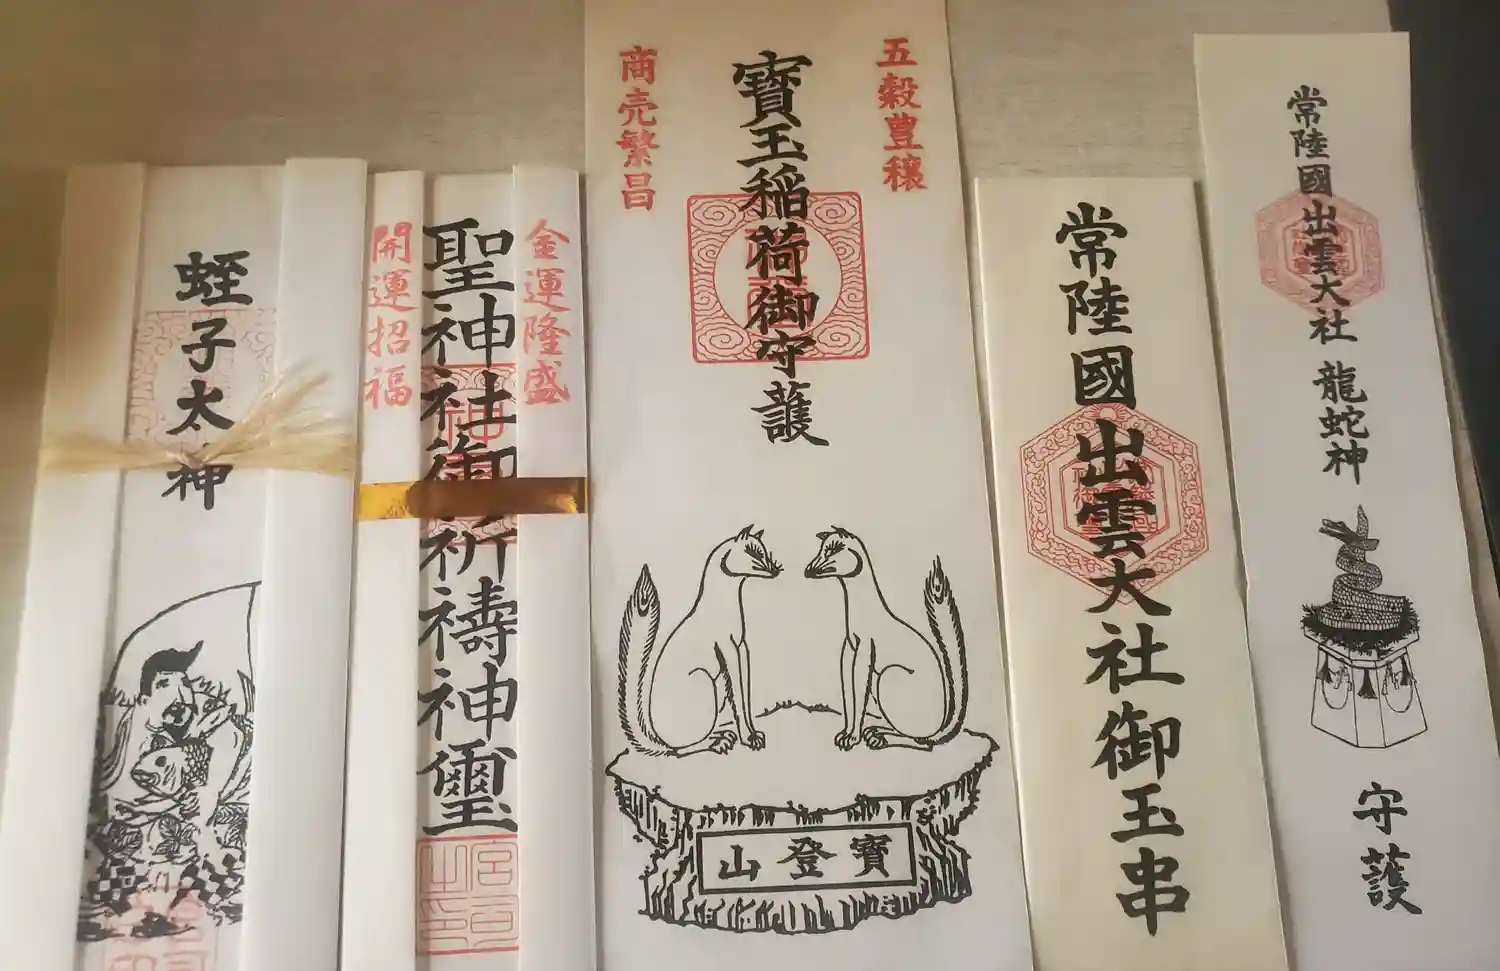 蛭子太神
開運招福
聖神社御祈禱神璽
金運隆盛
宮司之印
商売繁昌
寶玉稲荷御守護
五穀豊穣
寶登山
常陸國出雲大社御玉串
常陸國出雲大社 龍蛇神 守護